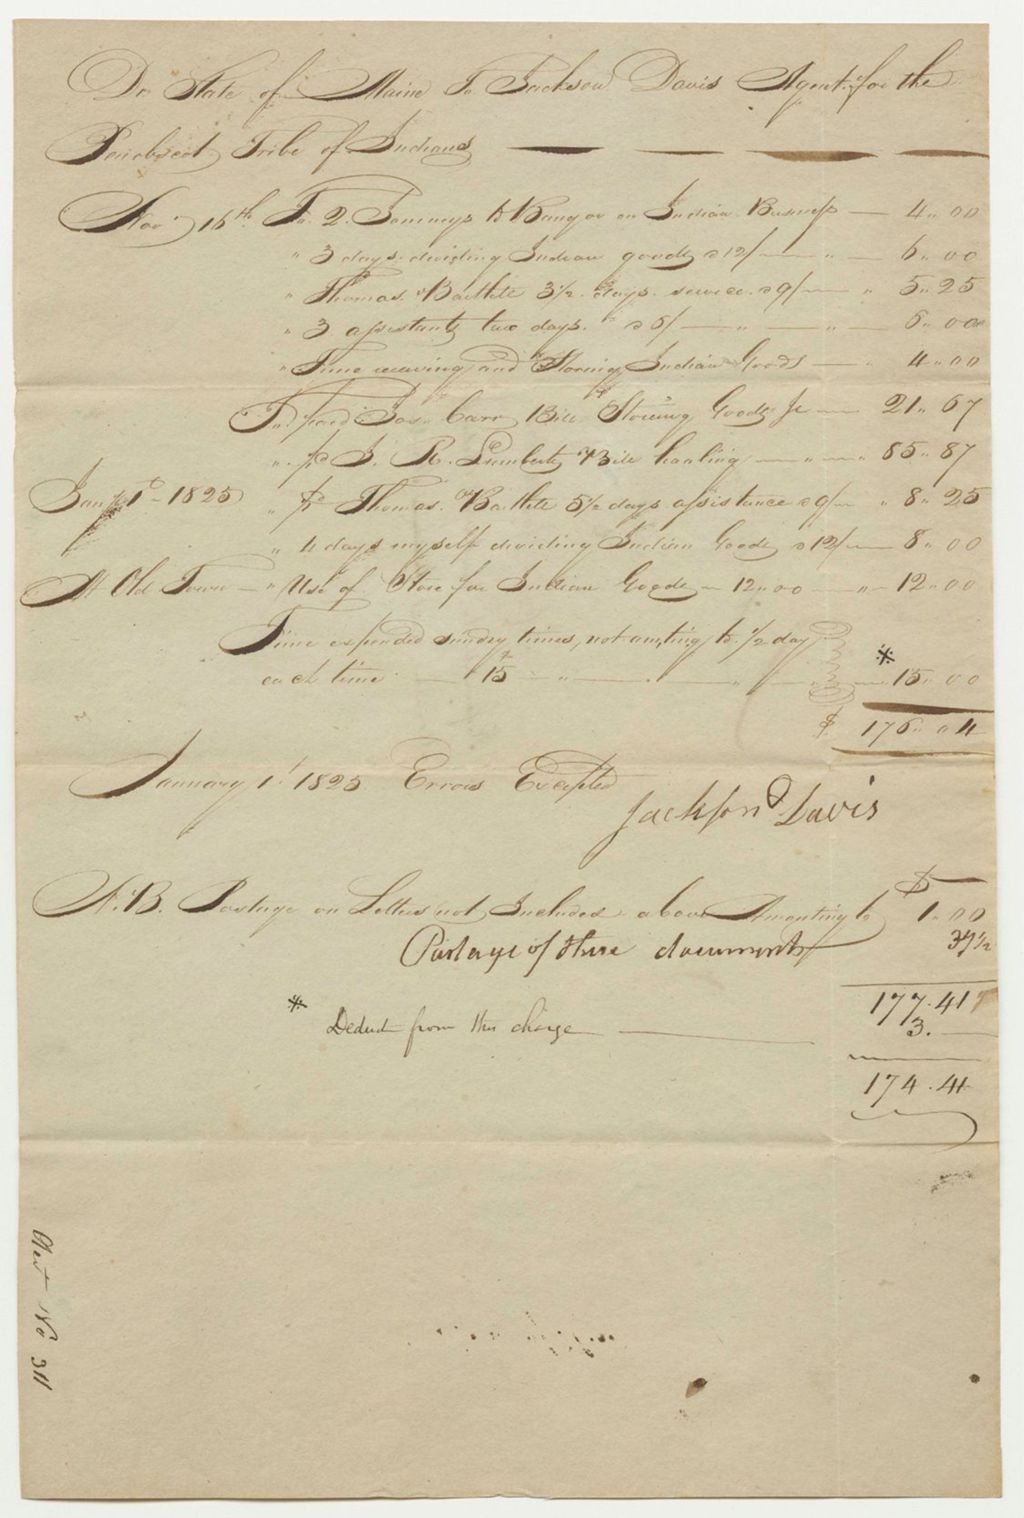 Dr. State of Maine To Jackson Davis Agent for the
Penobscot Tribe of Indians
Nov 16th To 2 Journeys to Bangor on Indian Business — 4.. 00
" 3 days dividing Indian goods a 12/ — " — 6.. 00
" Thomas Bartlett 3 1/2 days service a 9/ — " 5.. 25
" 3 assistants two days a 6/ — " — " — 6.. 00
" Time receiving and Storing Indian Goods — " 4.. 00
To paid Jas. Carr Bill Storing Goods &c — 21.. 67
" pd J. R. Lumbert Bill hauling — " — " 85.. 87
Jany 1st 1825 " pd Thomas Bartlett 5 1/2 days assistance a 9/ — " 8.. 25
" 4 days myself dividing Indian Goods a 12/ — 8.. 00
At Old Town — " Use of Store for Indian Goods — 12..00 — " — 12.. 00
Time expended sundry times, not amting to 1/2 day
each time — 15 — " — " — * 15.. 00
$ 176.. 04
January 1st 1825 Errors Excepted
Jackson Davis
N.B. Postage on Letters not Included above Amounting to $ 1.. 00
Postage of these documents 37 1/2
177.41
* Deduct from this charge — 3. —
174.41
Acct No 311